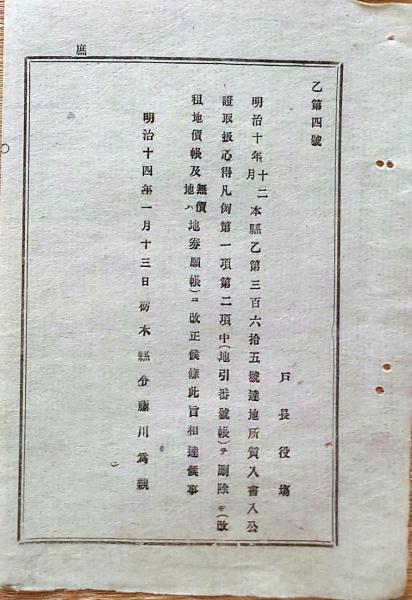 乙第四號
戸長役塲
明治十年十二月本縣乙第三百六拾五號達地所質入書入公
證取扱心得凡例第一項第二項中(地引番號帳)ヲ刪除シ(改
租地價帳及無價地ハ地劵願帳)ニ改正候條此旨相達候事
明治十四年一月十三日栃木縣令藤川爲親
庶